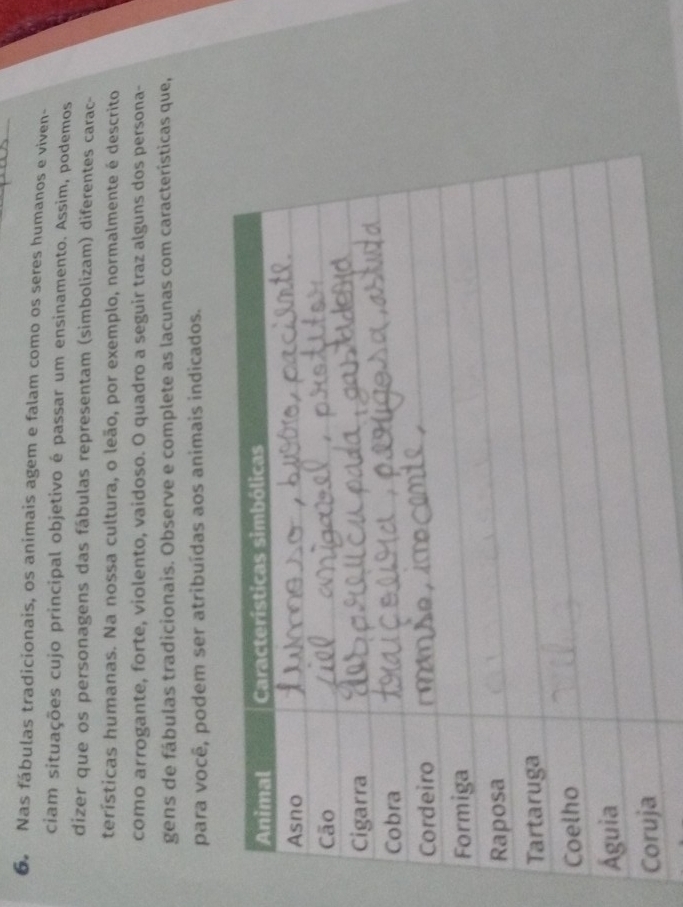 6. Nas fábulas tradicionais, os animais agem e falam como os seres humanos e viven-
ciam situações cujo principal objetivo é passar um ensinamento. Assim, podemos
dizer que os personagens das fábulas representam (simbolizam) diferentes carac-
terísticas humanas. Na nossa cultura, o leão, por exemplo, normalmente é descrito
como arrogante, forte, violento, vaidoso. O quadro a seguir traz alguns dos persona-
gens de fábulas tradicionais. Observe e complete as lacunas com características que,
para você, podem ser atribuídas aos animais indicados.
Animal Características simbólicas
Asno teimoso, burro, paciente.
Cão fiel amigavel, protetor
Cigarra despreucupada,
Cobra traiçoeira, perigosa, astuta
Cordeiro manso, inocente,
Formiga
Raposa
Tartaruga
Coelho
Águia
Coruja